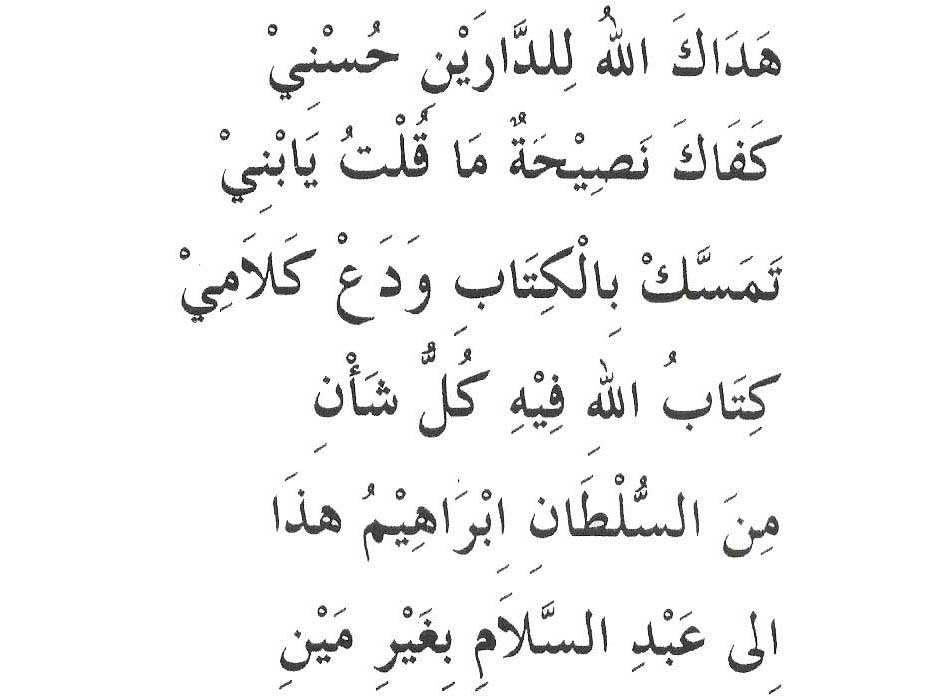 هَدَاكَ اللهُ لِلدَّارَيْنِ حُسْنِيْ
كَفَاكَ نَصِيْحَةٌ مَا قُلْتُ يَابْنِيْ
تَمَسَّكْ بِالْكِتَابِ وَدَعْ كَلَامِيْ
كِتَابُ اللهِ فِيْهِ كُلُّ شَأْنِ
مِنَ السُّلْطَانِ اِبْرَاهِيْمُ هذَا
اِلى عَبْدِ السَّلَامِ بِغَيْرِ مَيْنِ